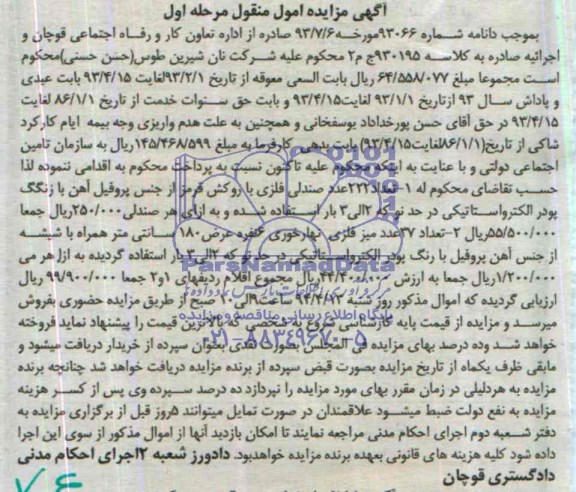 آگهی مزایده اموال منقول مرحله اول
بموجب دادنامه شماره ۹۳۰۶۶مورخه۹۳/۷/۶ صادره از اداره تعاون کار و رفاه اجتماعی قوچان و
اجرائیه صادره به کلاسه ۹۳۰۱۹۵ج م۲ محکوم علیه شرکت نان شیرین طوس(حسن حسنی)محکوم
است مجموعا مبلغ ۶۴/۵۵۸/۰۷۷ ریال بابت السعی معوقه از تاریخ ۹۳/۲/۱لغایت ۹۳/۴/۱۵ بابت عیدی
و پاداش سال ۹۳ ازتاریخ ۹۳/۱/۱ لغایت۹۳/۴/۱۵ و بابت حق سنوات خدمت از تاریخ ۸۶/۱/۱ لغایت
۹۳/۴/۱۵ در حق آقای حسن پورخداداد یوسفخانی و همچنین به علت عدم واریزی وجه بیمه ایام کارکرد
شاکی از تاریخ(۸۶/۱/۱لغایت۹۳/۴/۱۵) بابت بدهی کارفرما به مبلغ ۱۴۵/۴۶۸/۵۹۹ریال به سازمان تامین
اجتماعی دولتی و با عنایت به اینکه محکوم علیه تاکنون نسبت به پرداخت محکوم به اقدامی ننموده لذا
حسب تقاضای محکوم له ۱-تعداد۲۲۲عدد صندلی فلزی با روکش قرمز از جنس پروفیل آهن با رنگگ
پودر الکترواستاتیکی در حد نو که ۲الی۳ بار استفاده شده و به ازای هر صندلی۲۵۰/۰۰۰ریال جمعا
۵۵/۵۰۰/۰۰۰ریال ۲-تعداد ۳۷عدد میز فلزی نهارخوری ۶نفره عرض۱۸۰ سانتی متر همراه با شیشه
از جنس آهن پروفیل با رنگ پودر الکترواستاتیکی در حد نو که ۲الی۳ بار استفاده گردیده به ازا هر می
۱/۲۰۰/۰۰۰ریال جمعا به ارزش ۴۴/۴۰۰/۰۰۰ریال مجموع اقلام ردیفهای ۱و۲ جمعا ۹۹/۹۰۰/۰۰۰ ریال
ارزیابی گردیده که اموال مذکور روز شنبه ۹۴/۴/۱۳ ساعت۹الی۱۰ صبح از طریق مزایده حضوری بفروش
میرسد و مزایده از قیمت پایه کارشناسی شروع به شخصی که بالاترین قیمت را پیشنهاد نماید فروخته
خواهد شد وده درصد بهای مزایده فی المجلس بصورت نقدی بعنوان سپرده از خریدار دریافت میشود و
مابقی ظرف یکماه از تاریخ مزایده بصورت قبض سپرده از برنده مزایده دریافت خواهد شد چنانچه برنده
مزایده به هردلیلی در زمان مقرر بهای مورد مزایده را نپردازد ده درصد سپرده وی پس از کسر هزینه
مزایده به نفع دولت ضبط میشود علاقمندان در صورت تمایل میتوانند ۵روز قبل از برگزاری مزایده به
دفتر شعبه دوم اجرای احکام مدنی مراجعه نمایند تا امکان بازدید آنها از اموال مذکور از سوی این اجرا
داده شود کلیه هزینه های قانونی بعهده برنده مزایده خواهدبود. دادورز شعبه ۲اجرای احکام مدنی
دادگستری قوچان
ParsNamadData
پایگاه اطلاع رسانی مناقصه و مزایده
۰۲۱-۸۸۳۴۹۶۷۰-۵